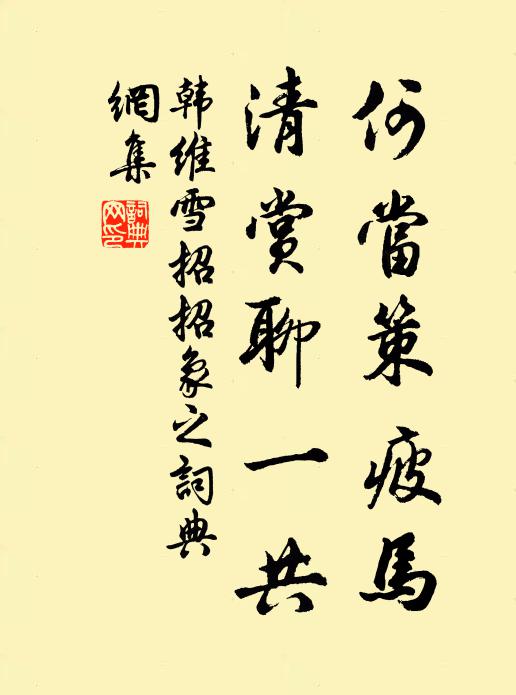 何當策疲馬
清賞聊一共
韩維雪招招象之詞典
網集
詞典
网印